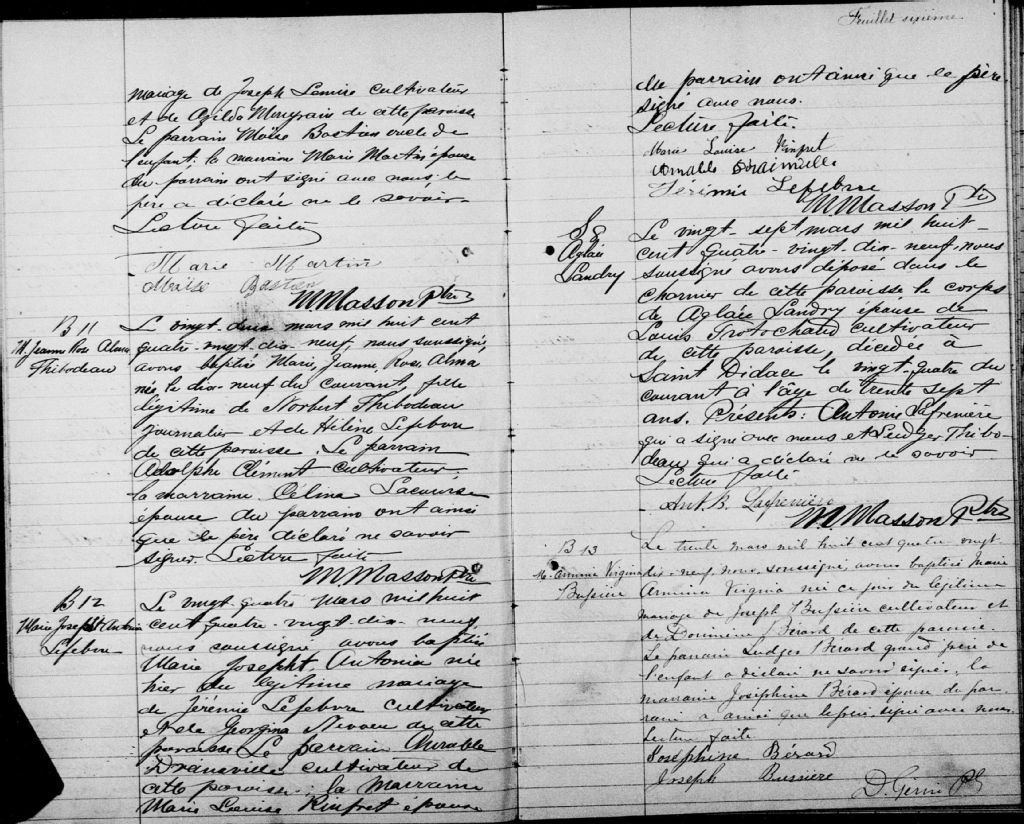 mariage de Joseph Lemire cultivateur
et de Azilda Mongrain de cette paroisse
Le parrain Moïse Bastien oncle de
l'enfant; la marraine Marie Martin épouse
du parrain ont signé avec nous; le
père a déclaré ne le savoir
Lecture faite
Marie Martin
Moïse Bastien
M Masson Ptre
B 11
M. Jeanne Rose Alma
Thibodeau
Le vingt-deux mars mil huit cent
quatre-vingt-dix-neuf nous soussigné,
avons baptisé Marie, Jeanne, Rose, Alma
née le dix-neuf du courant, fille
légitime de Norbert Thibodeau
journalier et de Hélène Lefebvre
de cette paroisse. Le parrain
Adolphe Clément cultivateur
la marraine Célina Lacourse
épouse du parrain ont ainsi
que le père déclaré ne savoir
signer. Lecture faite
M Masson Ptre
B 12
Marie Josepht Antonia
Lefebvre
Le vingt-quatre Mars mil huit
cent quatre-vingt-dix-neuf,
nous soussigné avons baptisé
Marie Josepht, Antonia née
hier du légitime mariage
de Jérémie Lefebvre cultivateur
et de Georgina Neveu de cette
paroisse Le parrain Amable
Drainville cultivateur de
cette paroisse; la Marraine
Marie Louise Rinfret épouse
Feuillet sixième
du parrain ont ainsi que le père
signé avec nous.
Lecture faite.
Marie Louise Rinfret
Amable Drainville
Jérémie Lefebvre
M Masson Ptre
S 8
Aglaée
Landry
Le vingt-sept mars mil huit-
cent quatre-vingt-dix-neuf, nous
soussigné avons déposé dans le
charnier de cette paroisse le corps
de Aglaée Landry épouse de
Louis Trotochaud cultivateur
de cette paroisse, décédée à
Saint Didace le vingt-quatre du
courant à l'âge de trente sept
ans. Présents: Antoine Lafrenière
qui a signé avec nous et Ludger Thibo-
deau qui a déclaré ne le savoir
Lecture faite
Ant. B. Lafrenière
M Masson Ptre
B 13
M. Armina Virginia
Bussière
Le trente mars mil huit cent quatre vingt
dix-neuf, nous, soussigné, avons baptisé Marie
Armina Virginia née ce jour du légitime
mariage de Joseph Bussière cultivateur et
de Bérard de cette paroisse.
Le parrain Ludger Bérard grand père de
l'enfant a déclaré ne savoir signer, la
marraine Joséphine Bérard épouse du par-
rain a ainsi que le père, signé avec nous
Lecture faite
Joséphine Bérard
Joseph Bussière
D. Gérin Ptre